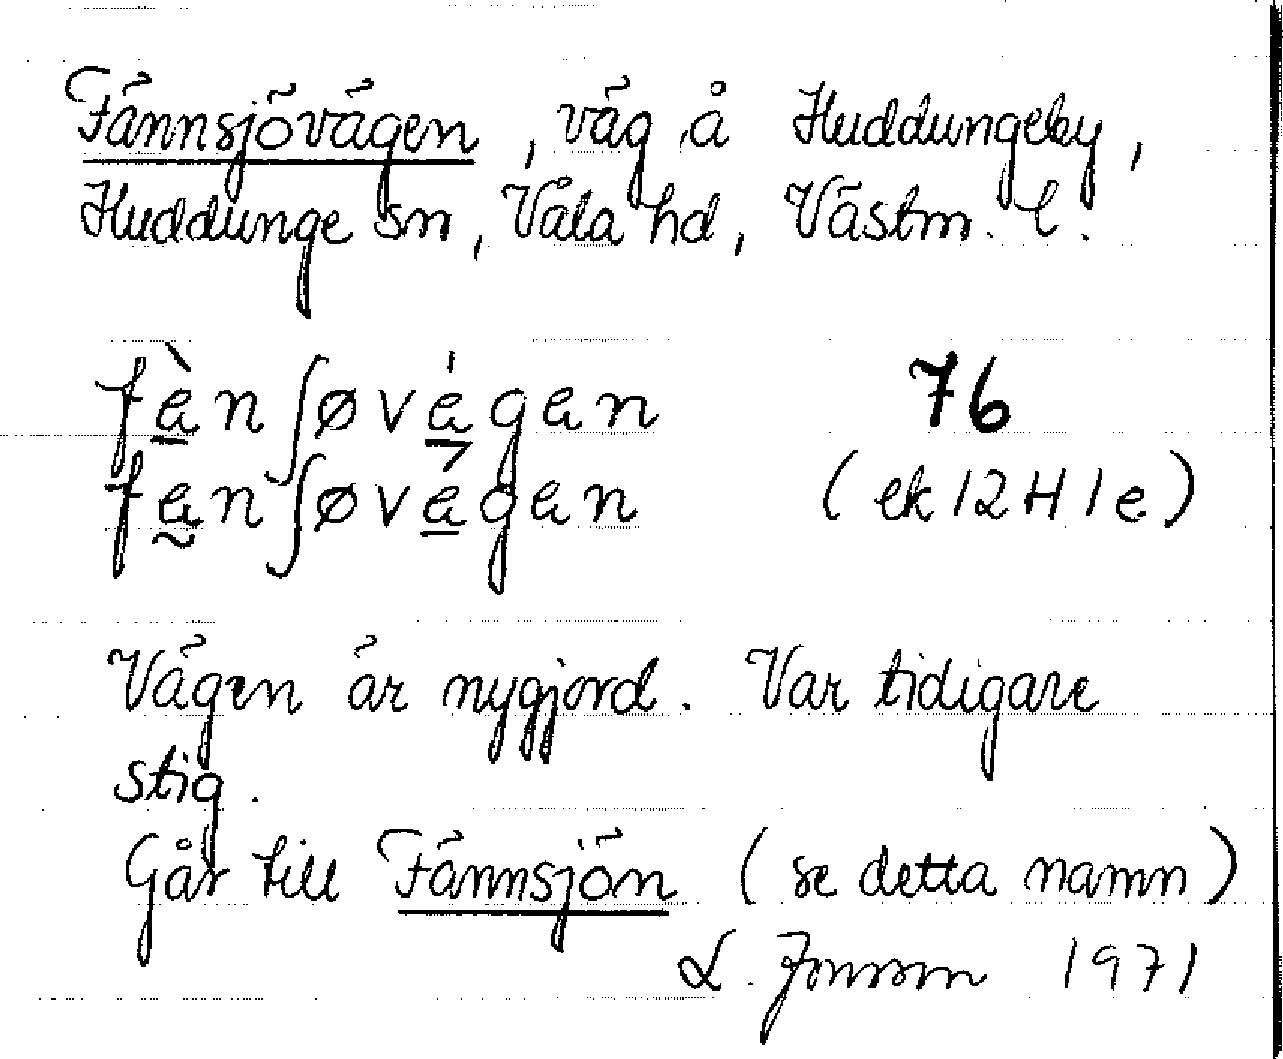 Fännsjövägen, väg å Huddungeby,
Huddunge sn, Våla hd, Västm. l.
fèn∫øvégen 76
fen∫øvegen (ek 12H1e)
Vägen är nygjord. Var tidigare
stig.
Går till Fännsjön (se detta namn)
L. Jonsson 1971